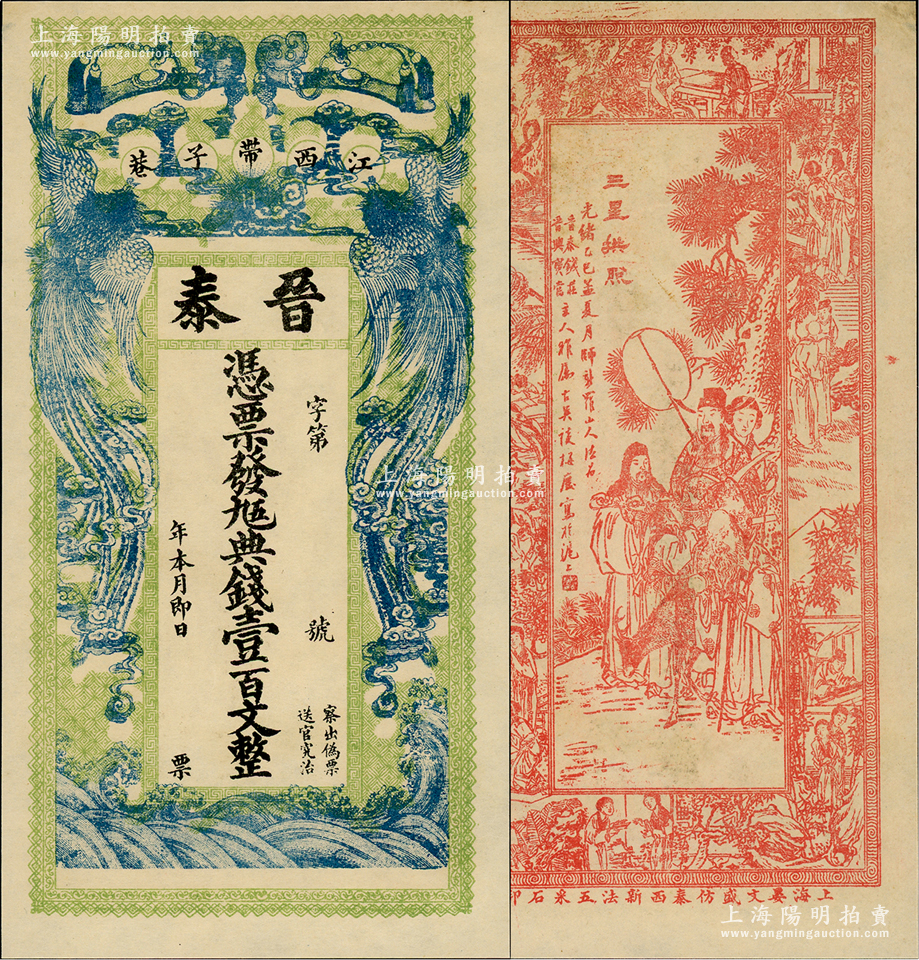 上海陽明拍賣
www.yangmingauction.com
江西帶子巷
晉泰
字第 號
憑票發兌典錢壹百文整
年本月即日 票
察出偽票
送官究治
三星
光緒乙巳孟夏月師新羅山人法於
晉泰錢莊
晉興寶
主人雅屬古吳後
寫於滬上
上海晏文盛仿泰西新法五采石印
上海陽明拍賣
www.yangmingauction.com
上海陽明拍賣
www.yangmingauction.com